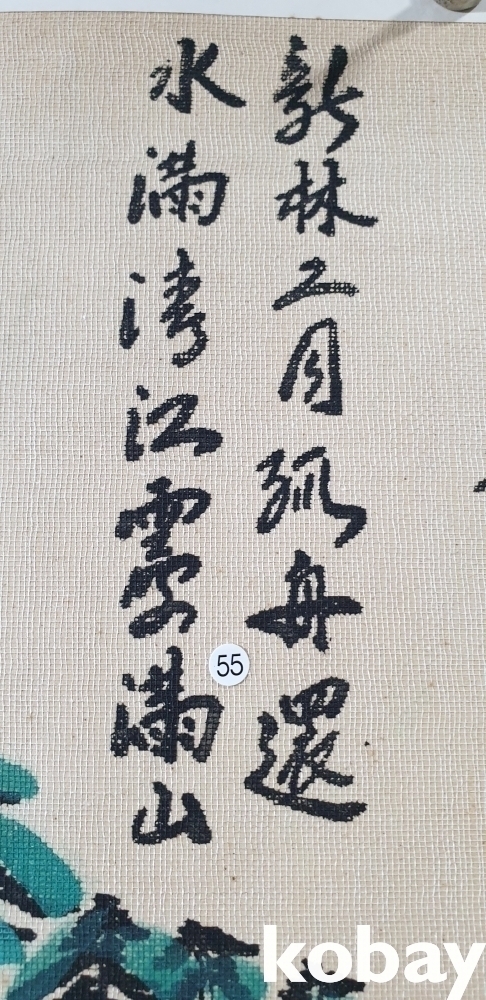 新林二月孤舟還
水滿清江雲滿山
55
kobay